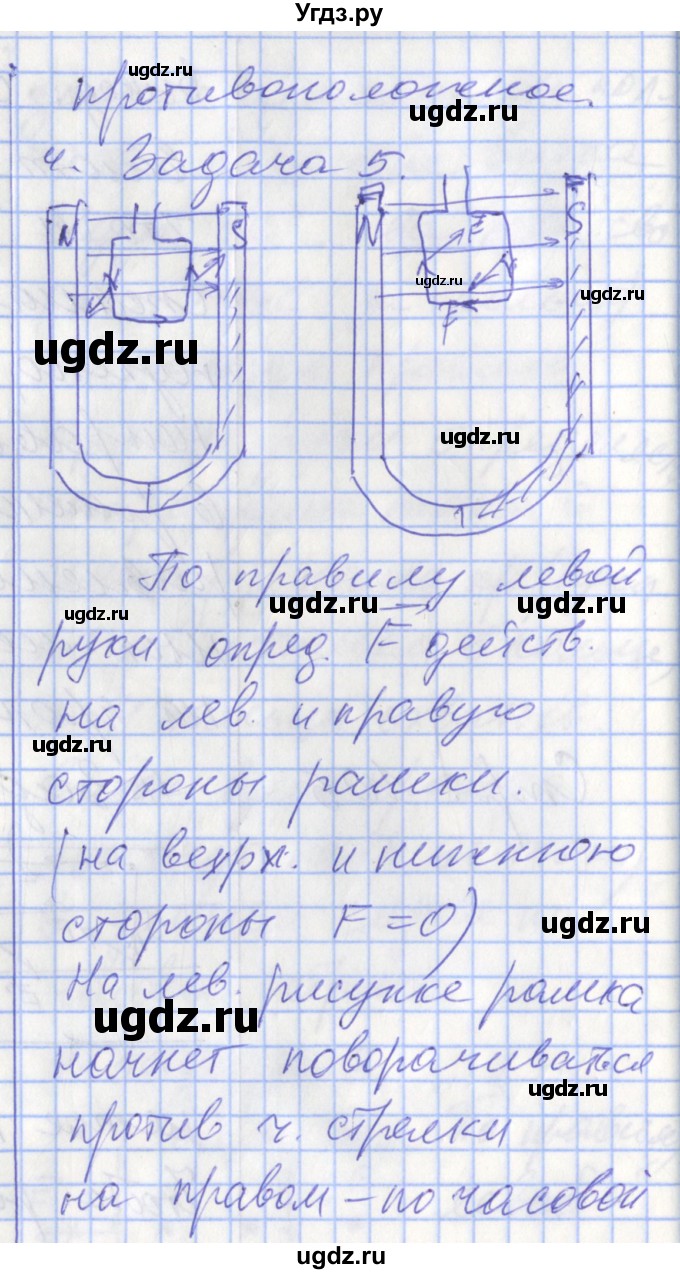 Угдз.ру
ugdz.ru
противоположное.
ugdz.ru
4. Задача 5.
N S N S
F
ugdz.ru
ugdz.ru
F
ugdz.ru
ugdz.ru
По правилу левой
ugdz.ru ugdz.ru ugdz.ru
руки опред. F действ.
на лев. и правую
ugdz.ru
стороны рамки.
(на верхн. и нижнюю
стороны F = 0)
ugdz.ru
На лев. рисунке рамка
ugdz.ru
начнет поворачиваться
ugdz.ru
против ч. стрелки
на правом – по часовой
ugdz.ru